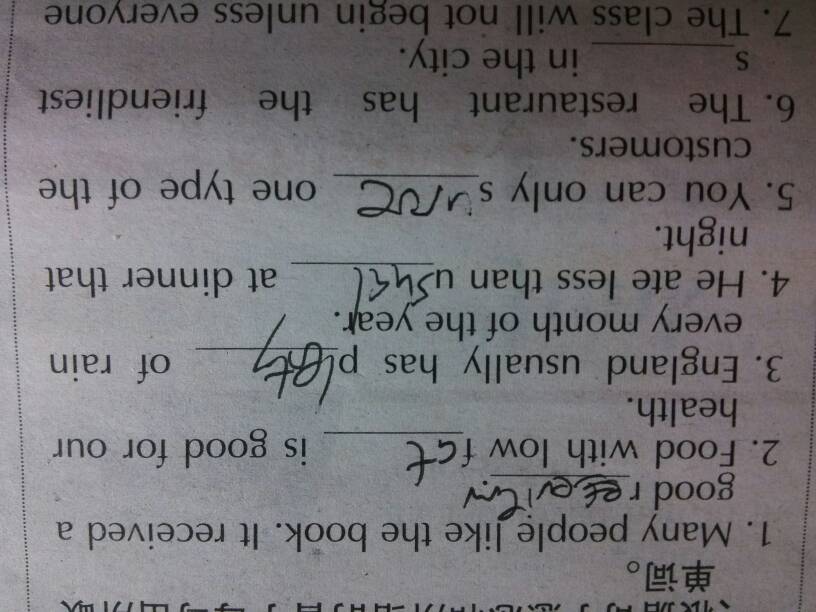 单词。
1. Many people like the book. It received a
good r
2. Food with low fat is good for our
health.
3. England usually has p of rain
every month of the year.
4. He ate less than usual at dinner that
night.
5. You can only s one type of the
customers.
6. The restaurant has the friendliest
s in the city.
7. The class will not begin unless everyone